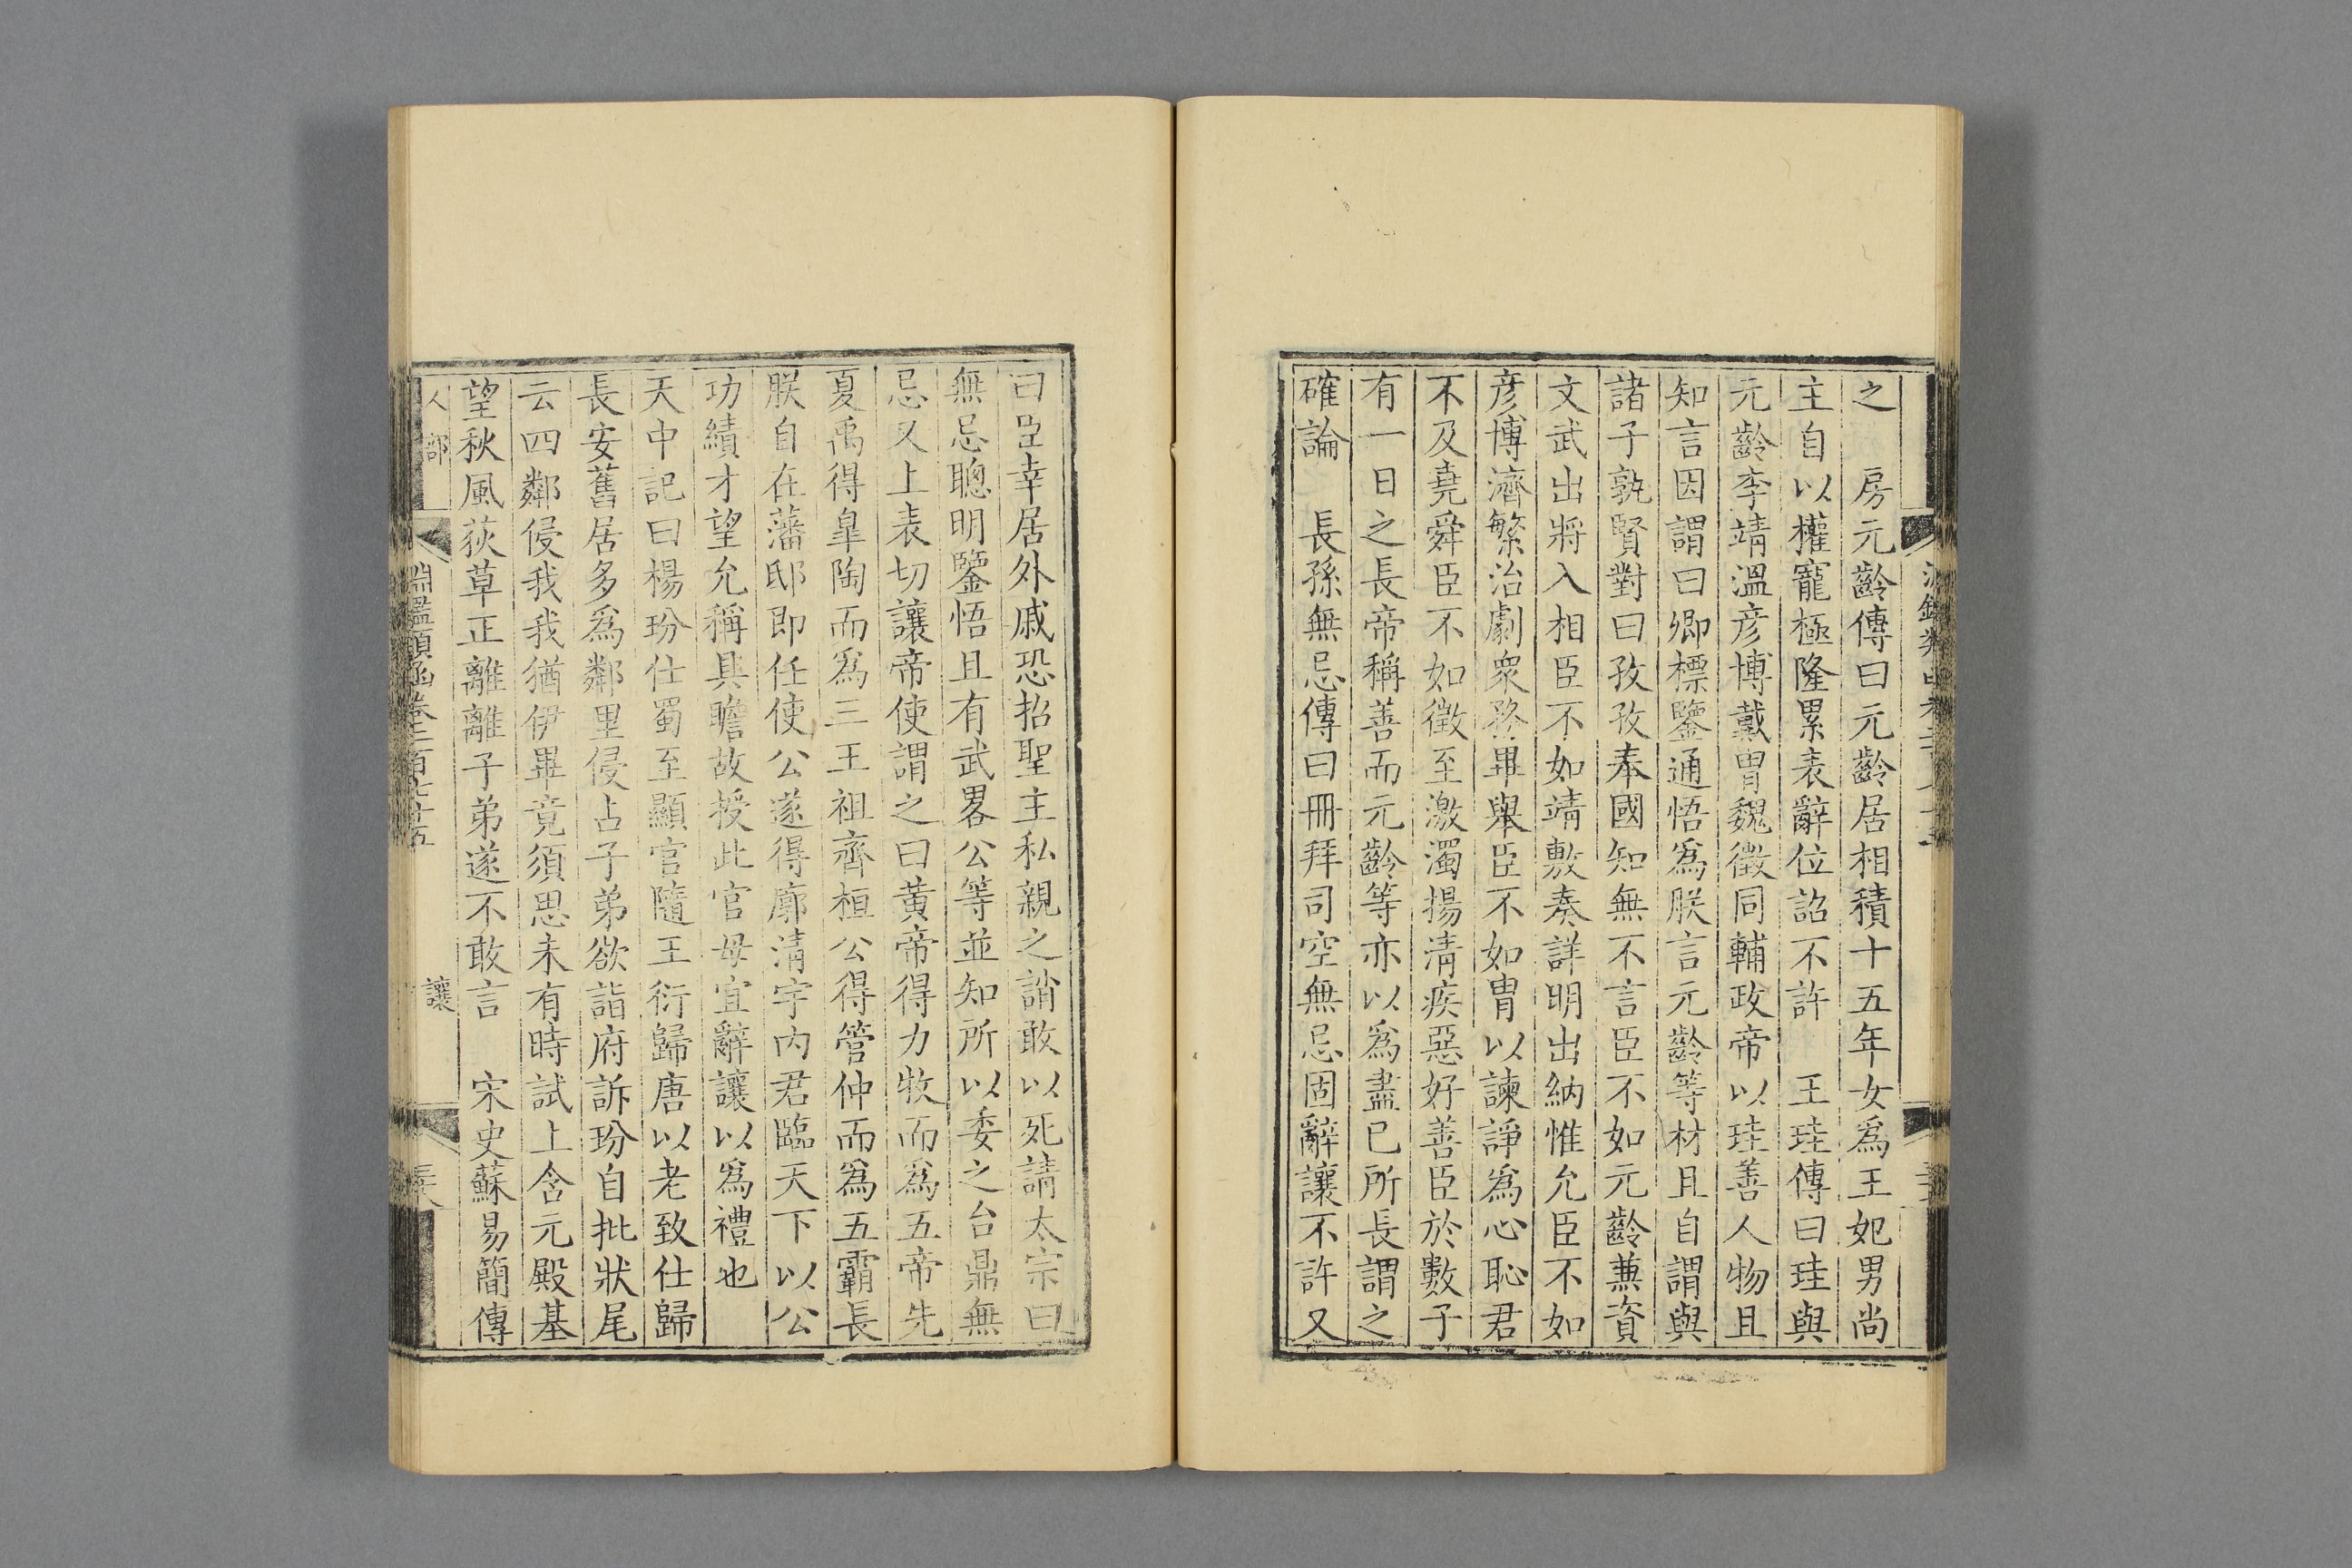 之　房元齡傳曰元齡居相積十五年女為王妃男尚
主自以權寵極隆累表辭位詔不許　王珪傳曰珪與
元齡李靖溫彥博戴胄魏徵同輔政帝以珪善人物且
知言因謂曰卿標鑒通悟為朕言元齡等材且自謂與
諸子孰賢對曰孜孜奉國知無不言臣不如元齡兼資
文武出將入相臣不如靖敷奏詳明出納惟允臣不如
彥博濟繁治劇衆務畢舉臣不如胄以諫諍為心恥君
不及堯舜臣不如徵至激濁揚清疾惡好善臣於數子
有一日之長帝稱善而元齡等亦以為盡已所長謂之
確論　長孫無忌傳曰冊拜司空無忌固辭讓不許又
曰臣幸居外戚恐招聖主私親之誚敢以死請太宗曰
無忌聰明鑒悟且有武畧公等並知所以委之台鼎無
忌又上表切讓帝使謂之曰黃帝得力牧而為五帝先
夏禹得臯陶而為三王祖齊桓公得管仲而為五霸長
朕自在藩邸即任使公遂得廓清宇内君臨天下以公
功績才望允稱具瞻故授此官毋宜辭讓以為禮也
天中記曰楊玢仕蜀至顯官隨王衍歸唐以老致仕歸
長安舊居多為鄰里侵占子弟欲詣府訴玢自批狀尾
云四鄰侵我我猶伊畢竟須思未有時試上含元殿基
望秋風荻草正離離子弟遂不敢言　宋史蘇易簡傳
人部　淵鑑類函卷二百七十五　讓